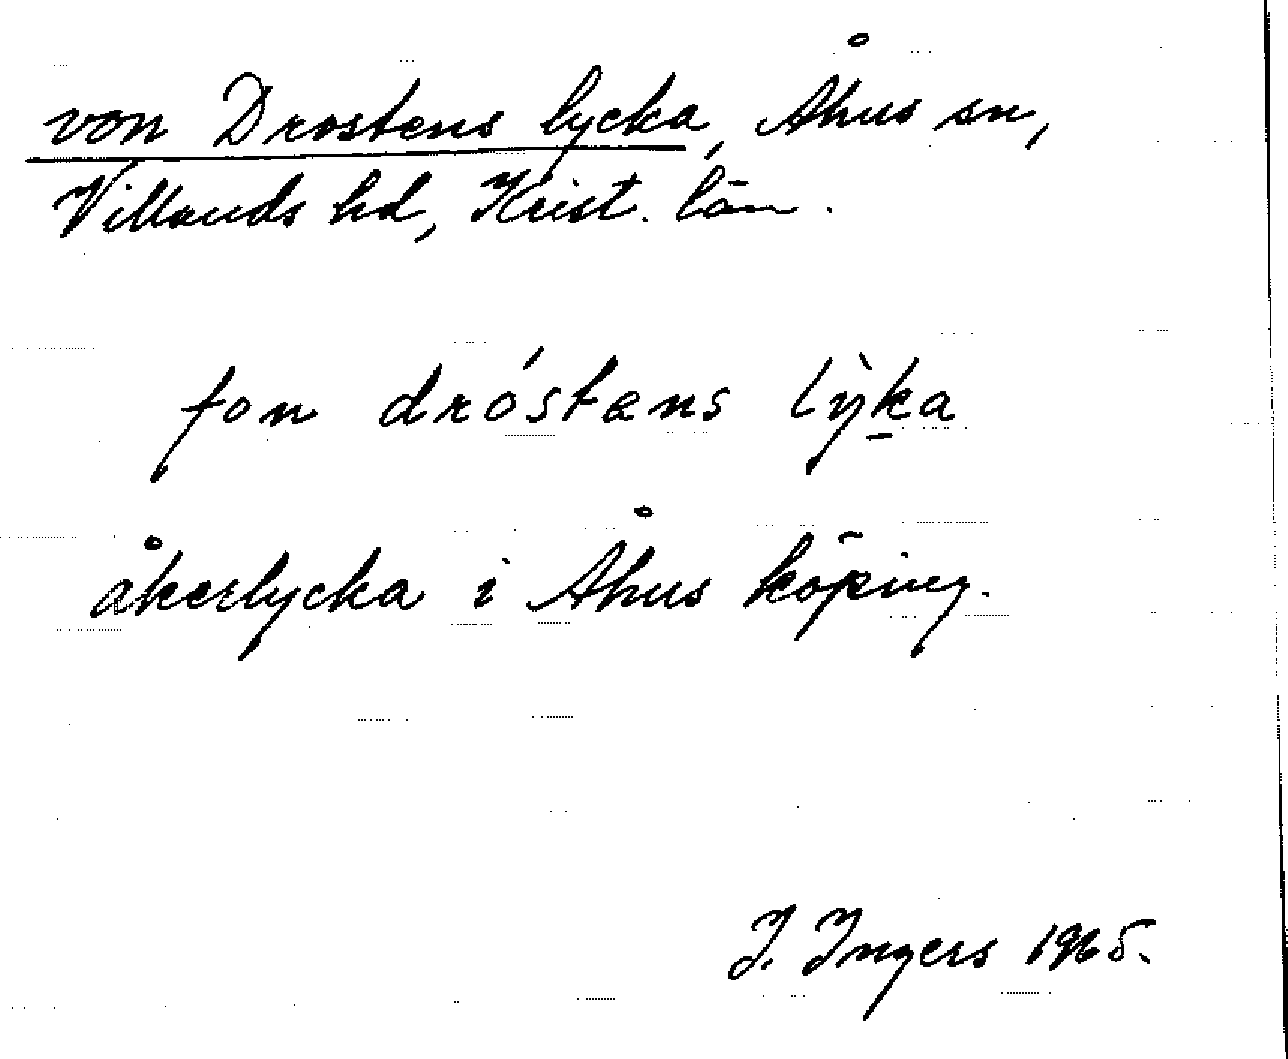 von Drostens lycka, Åhus sn,
Villands hd, Krist. län.
fon dróstens lỳka
åkerlycka i Åhus köping.
I. Ingers 1965.